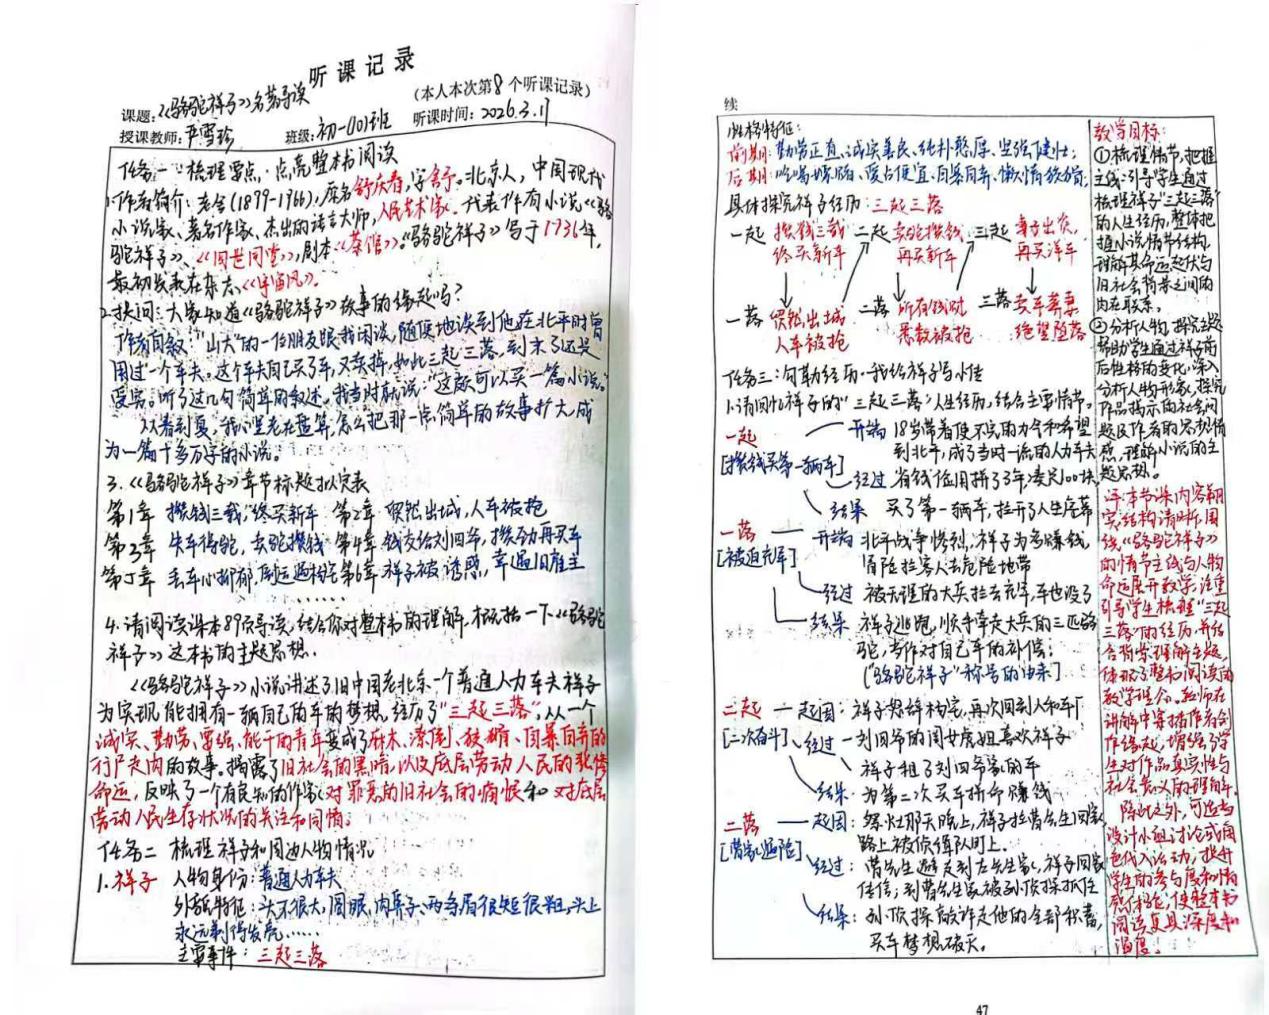 听课记录
(本人本次第8个听课记录)
课题:《骆驼祥子》名著导读
授课教师:尹雪珍 班级:初一001班 听课时间:2026.3.17
任务一:梳理要点,点亮整本书阅读
1.作者简介:老舍(1899-1966),原名舒庆春,字舍予。北京人,中国现代
小说家、著名作家、杰出的语言大师,人民艺术家。代表作有小说《骆
驼祥子》、《四世同堂》,剧本《茶馆》。《骆驼祥子》写于1936年,
最初发表在杂志《宇宙风》。
2.提问:大家知道《骆驼祥子》故事的缘起吗?
"山大"的一位朋友跟我闲谈,随便地谈到他在北平时曾
用过一个车夫。这个车夫自己买了车,又卖掉,如此三起三落,到末了还是
受穷。听了这几句简单的叙述,我当时就说:"这颇可以写一篇小说。"
从春到夏,我心里老在盘算,怎么把那一点简单的故事扩大,成
为一篇十多万字的小说。
3.《骆驼祥子》章节标题拟定表
第1章 攒钱三载,终买新车 第2章 贸然出城,人车被抢
第3章 失车得驼,卖驼攒钱 第4章 钱交给刘四爷,攒劲再买车
第5章 丢车心郁郁, 第6章 祥子被诱惑,幸遇旧雇主
……
4.请阅读课本89页导读,结合你对整本书的理解,概括一下《骆驼
祥子》这本书的主题思想.
《骆驼祥子》小说讲述了旧中国老北京一个普通人力车夫祥子
为实现能拥有一辆自己的车的梦想,经历了"三起三落",从一个
诚实、勤劳、要强、能干的青年变成了麻木、潦倒、狡猾、自暴自弃的
行尸走肉的故事。揭露了旧社会的黑暗以及底层劳动人民的悲惨
命运,反映了一个有良知的作家对罪恶的旧社会的痛恨和对底层
劳动人民生存状况的关注和同情。
任务二 梳理祥子和周边人物情况
1.祥子 人物身份:普通人力车夫
外貌特征:头不很大,圆眼,肉鼻子,两条眉很短很粗,头上
永远剃得发亮……
主要事件:三起三落
续
性格特征:
前期:勤劳正直、诚实善良、纯朴憨厚、坚强健壮;
后期:吃喝嫖赌、爱占便宜、自暴自弃、懒惰狡猾;
具体探究祥子经历:三起三落
一起 攒钱三载 二起 卖驼攒钱 三起 妻子出资,
终买新车 再买新车 再买洋车
一落 贸然出城 二落 所有钱财 三落 卖车葬妻
人车被抢 悉数被抢 绝望堕落
任务三:勾勒经历·我给祥子写小传
1.请回忆祥子的"三起三落"人生经历,结合主要情节。
一起 开端 18岁带着使不完的力气和希望
[攒钱买第一辆车] 到北平,成了当时一流的人力车夫
经过 省钱信用拼了3年,凑足100块
结果 买了第一辆车,拉开了人生序幕
一落 开端 北平战争惨烈,祥子为多赚钱,
[被迫充军] 冒险拉客人去危险地带
经过 被无理的大兵拉去充军,车也没了
结果 祥子逃跑,顺手牵走大兵的三匹骆
驼,当作对自己车的补偿;
["骆驼祥子"称号的由来]
二起 起因:祥子 杨家,再次回到人和车厂
[二次奋斗] 经过 刘四爷的闺女虎妞喜欢祥子
祥子租了刘四爷家的车
结果:为第二次买车拼命赚钱
二落 起因:祭灶那天晚上,祥子拉曹先生回家
[曹家遇险] 路上被侦探盯上.
经过:曹先生避走到左先生家,祥子回家
住信,到曹先生家被刘侦探抓住
结果:孙侦探敲诈走他的全部积蓄,
买车梦想破灭。
教学目标:
①梳理情节,把握
主线:引导学生通过
梳理祥子"三起三落"
的人生经历,整体把
握小说情节结构,
理解其命运起伏与
旧社会背景之间的
内在联系。
②分析人物,探究主题:
帮助学生通过祥子前
后性格的变化,深入
分析人物形象,探究
作品揭示的社会问
题及作者的思想情
感,理解小说的主
题思想。
评:本节课内容翔
实,结构清晰,围
绕《骆驼祥子》
的情节主线与人物
命运展开教学,注重
引导学生梳理"三起
三落"的经历,并结
合背景理解主题,
体现了整本书阅读的
教学理念。教师在
讲解中穿插作者创
作缘起,增强了学
生对作品真实性与
社会意义的理解.
除此之外,可适当
设计小组讨论或角
色代入活动,提升
学生的参与度和情
感体验,使整本书
阅读更具深度和
温度。
47